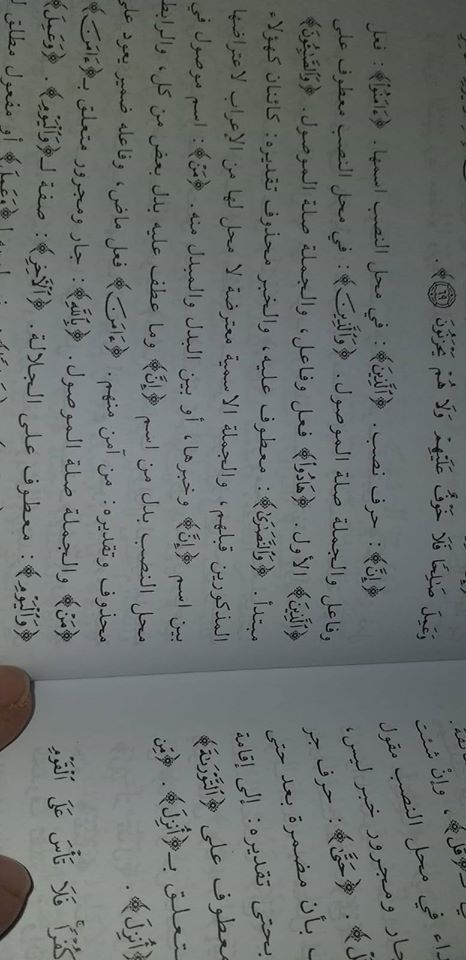 وَعَمِلَ صَالِحًا فَلَا خَوْفٌ عَلَيْهِمْ وَلَا هُمْ يَحْزَنُونَ ٦٩﴾.
﴿إِنَّ﴾ : حرف نصب. ﴿الَّذِينَ﴾ : في محل النصب اسمها. ﴿ءَامَنُوا﴾ : فعل
وفاعل والجملة صلة الموصول. ﴿وَالَّذِينَ﴾ : في محل النصب معطوف على
﴿الَّذِينَ﴾ الأول. ﴿هَادُوا﴾ فعل وفاعل، والجملة صلة الموصول. ﴿وَالصَّابِئُونَ﴾
مبتدأ. ﴿وَالنَّصَارَىٰ﴾ : معطوف عليه، والخبر محذوف تقديره: كائنان كهؤلاء
المذكورين قبلهم، والجملة الاسمية معترضة لا محل لها من الإعراب لاعتراضها
بين اسم ﴿إِنَّ﴾ وخبرها، أو بين البدل والمبدل منه. ﴿مَنْ﴾ : اسم موصول في
محل النصب بدل من اسم ﴿إِنَّ﴾ وما عطف عليه بدل بعض من كل، والرابط
محذوف وتقديره: من آمن منهم. ﴿ءَامَنَ﴾ فعل ماض، وفاعله ضمير يعود على
﴿مَنْ﴾ والجملة صلة الموصول. ﴿بِاللَّهِ﴾ : جار ومجرور متعلق بـ﴿ءَامَنَ﴾
﴿وَالْيَوْمِ﴾ : معطوف على الجلالة. ﴿الْآخِرِ﴾ : صفة لـ﴿وَالْيَوْمِ﴾. ﴿وَعَمِلَ﴾
أو مفعول مطلق
﴿قُلْ﴾، وإن شئت
في محل النصب مقول
جار ومجرور خبر ليس،
﴿حَتَّىٰ﴾ : حرف جر
بأن مضمرة بعد حتى
بحتى تقديره: إلى إقامة
معطوف على ﴿التَّوْرَاةَ﴾
متعلق بـ﴿أُنْزِلَ﴾. ﴿مِن
﴿أُنْزِلَ﴾.
كُفْرًا فَلَا تَأْسَ عَلَى الْقَوْمِ